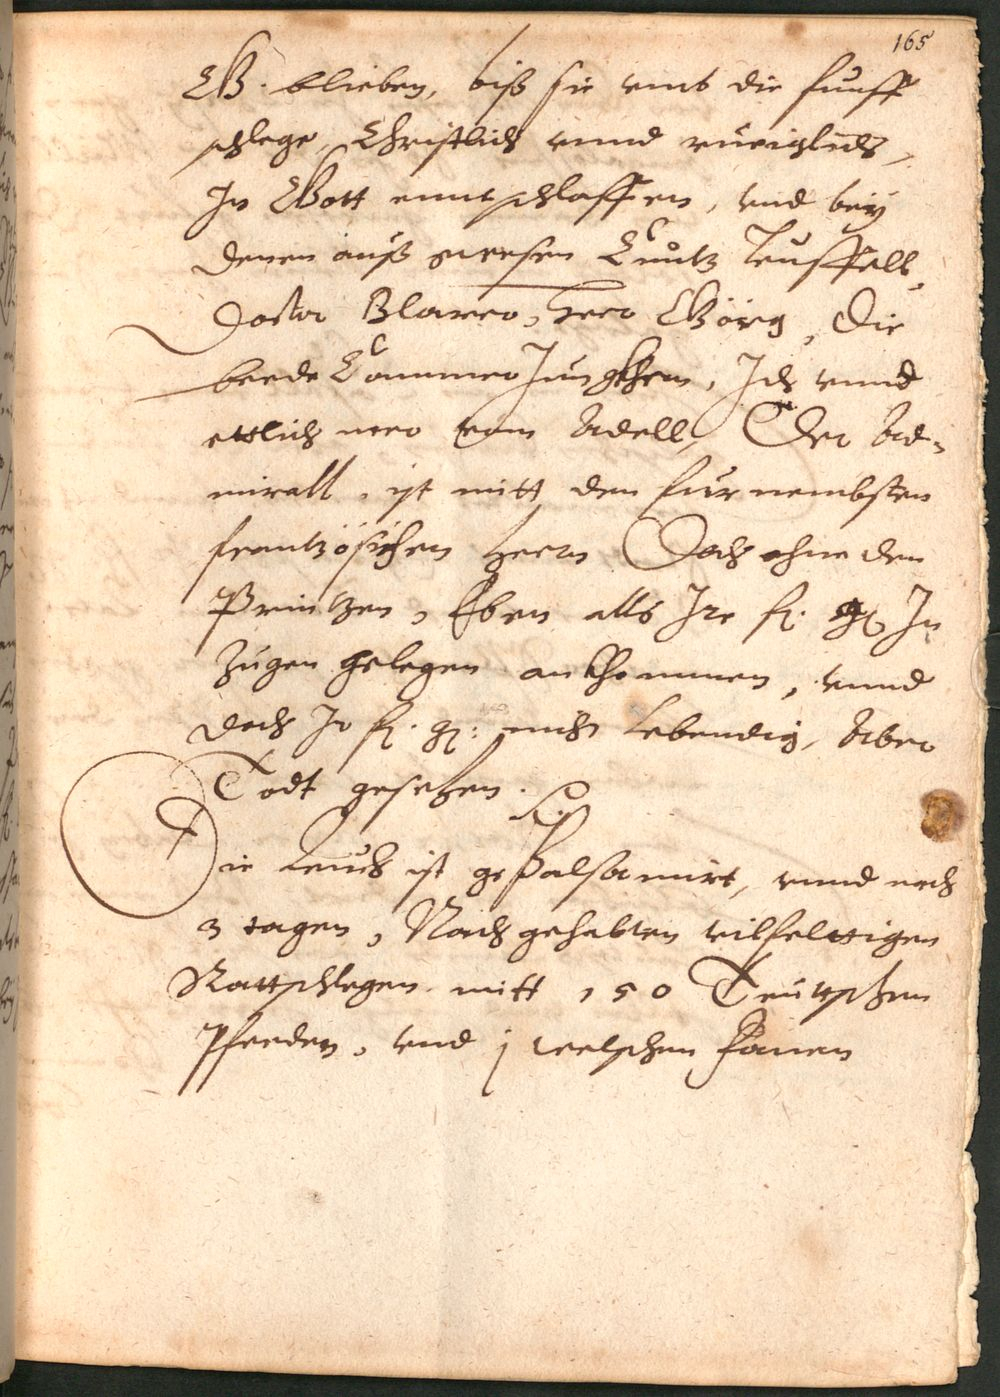 165
GG. blieben, biß sie umb die funff
schlege, Christlich unnd ruewiglich,
In Gott enntschlaffen, und bey
denen auß gewesen Cuntz Teuffell,
Doctor Blarer, Herr Görg, Die
beede Cammer Jungkhern, Ich unnd
ettlich mer vom Adell, Der Ad-
mirall, ist mitt den fürnembsten
frantzösischen Herrn Doch ohne den
Printzen, Eben alls Ire f. g. In
Zügen gelegen ankhommen, unnd
doch Ir f. g. nicht Lebendig, Aber
Todt gesehen.
Die Leuch ist gepalsamirt, unnd nach
3 tagen, Nach gehabten vilfeltigen
Rattschlegen mitt 150 Teutschen
Pferden, und j welschen Fanen